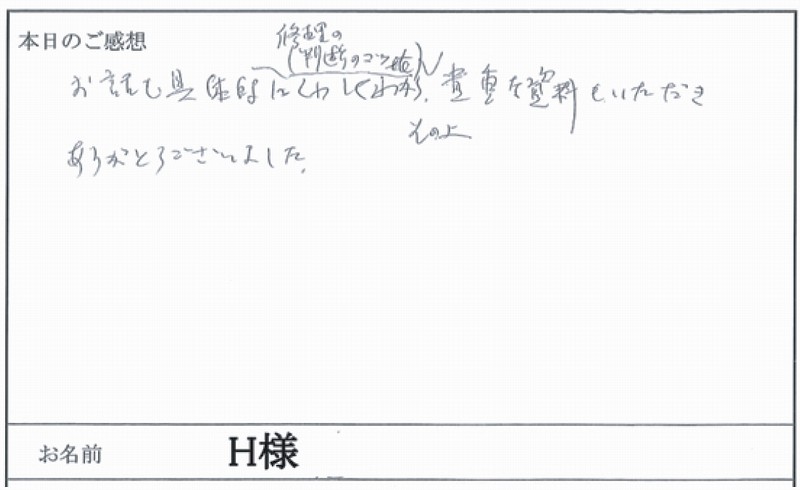 本日のご感想
修理の
(判断のコツ他)
お話も具体的にくわしくわかり、貴重な資料もいただき
その上
ありがとうございました。
お名前 H様